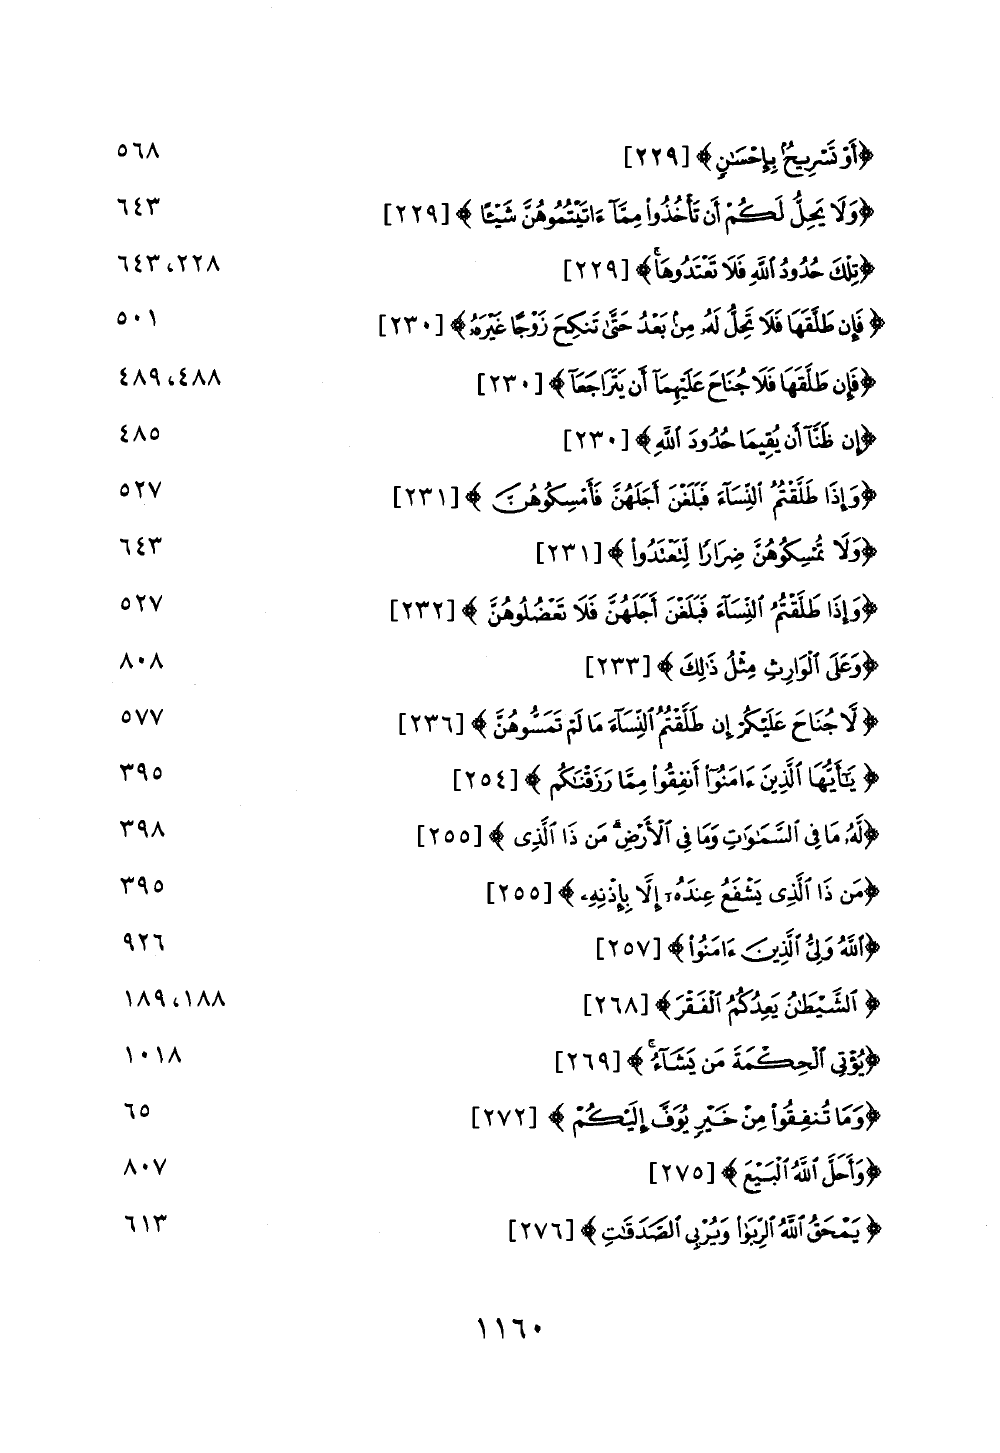 ﴿أَوْ تَسْرِيحٌۢ بِإِحْسَٰنٍ﴾ [٢٢٩] ٥٦٨
﴿وَلَا يَحِلُّ لَكُمْ أَن تَأْخُذُوا۟ مِمَّآ ءَاتَيْتُمُوهُنَّ شَيْـًٔا﴾ [٢٢٩] ٦٤٣
﴿تِلْكَ حُدُودُ ٱللَّهِ فَلَا تَعْتَدُوهَا ۚ﴾ [٢٢٩] ٦٤٣،٢٢٨
﴿فَإِن طَلَّقَهَا فَلَا تَحِلُّ لَهُۥ مِنۢ بَعْدُ حَتَّىٰ تَنكِحَ زَوْجًا غَيْرَهُۥ﴾ [٢٣٠] ٥٠١
﴿فَإِن طَلَّقَهَا فَلَا جُنَاحَ عَلَيْهِمَآ أَن يَتَرَاجَعَآ﴾ [٢٣٠] ٤٨٩،٤٨٨
﴿إِن ظَنَّآ أَن يُقِيمَا حُدُودَ ٱللَّهِ﴾ [٢٣٠] ٤٨٥
﴿وَإِذَا طَلَّقْتُمُ ٱلنِّسَآءَ فَبَلَغْنَ أَجَلَهُنَّ فَأَمْسِكُوهُنَّ﴾ [٢٣١] ٥٢٧
﴿وَلَا تُمْسِكُوهُنَّ ضِرَارًا لِّتَعْتَدُوا۟﴾ [٢٣١] ٦٤٣
﴿وَإِذَا طَلَّقْتُمُ ٱلنِّسَآءَ فَبَلَغْنَ أَجَلَهُنَّ فَلَا تَعْضُلُوهُنَّ﴾ [٢٣٢] ٥٢٧
﴿وَعَلَى ٱلْوَارِثِ مِثْلُ ذَٰلِكَ﴾ [٢٣٣] ٨٠٨
﴿لَّا جُنَاحَ عَلَيْكُمْ إِن طَلَّقْتُمُ ٱلنِّسَآءَ مَا لَمْ تَمَسُّوهُنَّ﴾ [٢٣٦] ٥٧٧
﴿يَٰٓأَيُّهَا ٱلَّذِينَ ءَامَنُوٓا۟ أَنفِقُوا۟ مِمَّا رَزَقْنَٰكُم﴾ [٢٥٤] ٣٩٥
﴿لَّهُۥ مَا فِى ٱلسَّمَٰوَٰتِ وَمَا فِى ٱلْأَرْضِ ۗ مَن ذَا ٱلَّذِى﴾ [٢٥٥] ٣٩٨
﴿مَن ذَا ٱلَّذِى يَشْفَعُ عِندَهُۥٓ إِلَّا بِإِذْنِهِۦ﴾ [٢٥٥] ٣٩٥
﴿ٱللَّهُ وَلِىُّ ٱلَّذِينَ ءَامَنُوا۟﴾ [٢٥٧] ٩٢٦
﴿ٱلشَّيْطَٰنُ يَعِدُكُمُ ٱلْفَقْرَ﴾ [٢٦٨] ١٨٩،١٨٨
﴿يُؤْتِى ٱلْحِكْمَةَ مَن يَشَآءُ ۚ﴾ [٢٦٩] ١٠١٨
﴿وَمَا تُنفِقُوا۟ مِنْ خَيْرٍ يُوَفَّ إِلَيْكُمْ﴾ [٢٧٢] ٦٥
﴿وَأَحَلَّ ٱللَّهُ ٱلْبَيْعَ﴾ [٢٧٥] ٨٠٧
﴿يَمْحَقُ ٱللَّهُ ٱلرِّبَوٰا۟ وَيُرْبِى ٱلصَّدَقَٰتِ﴾ [٢٧٦] ٦١٣
١١٦٠